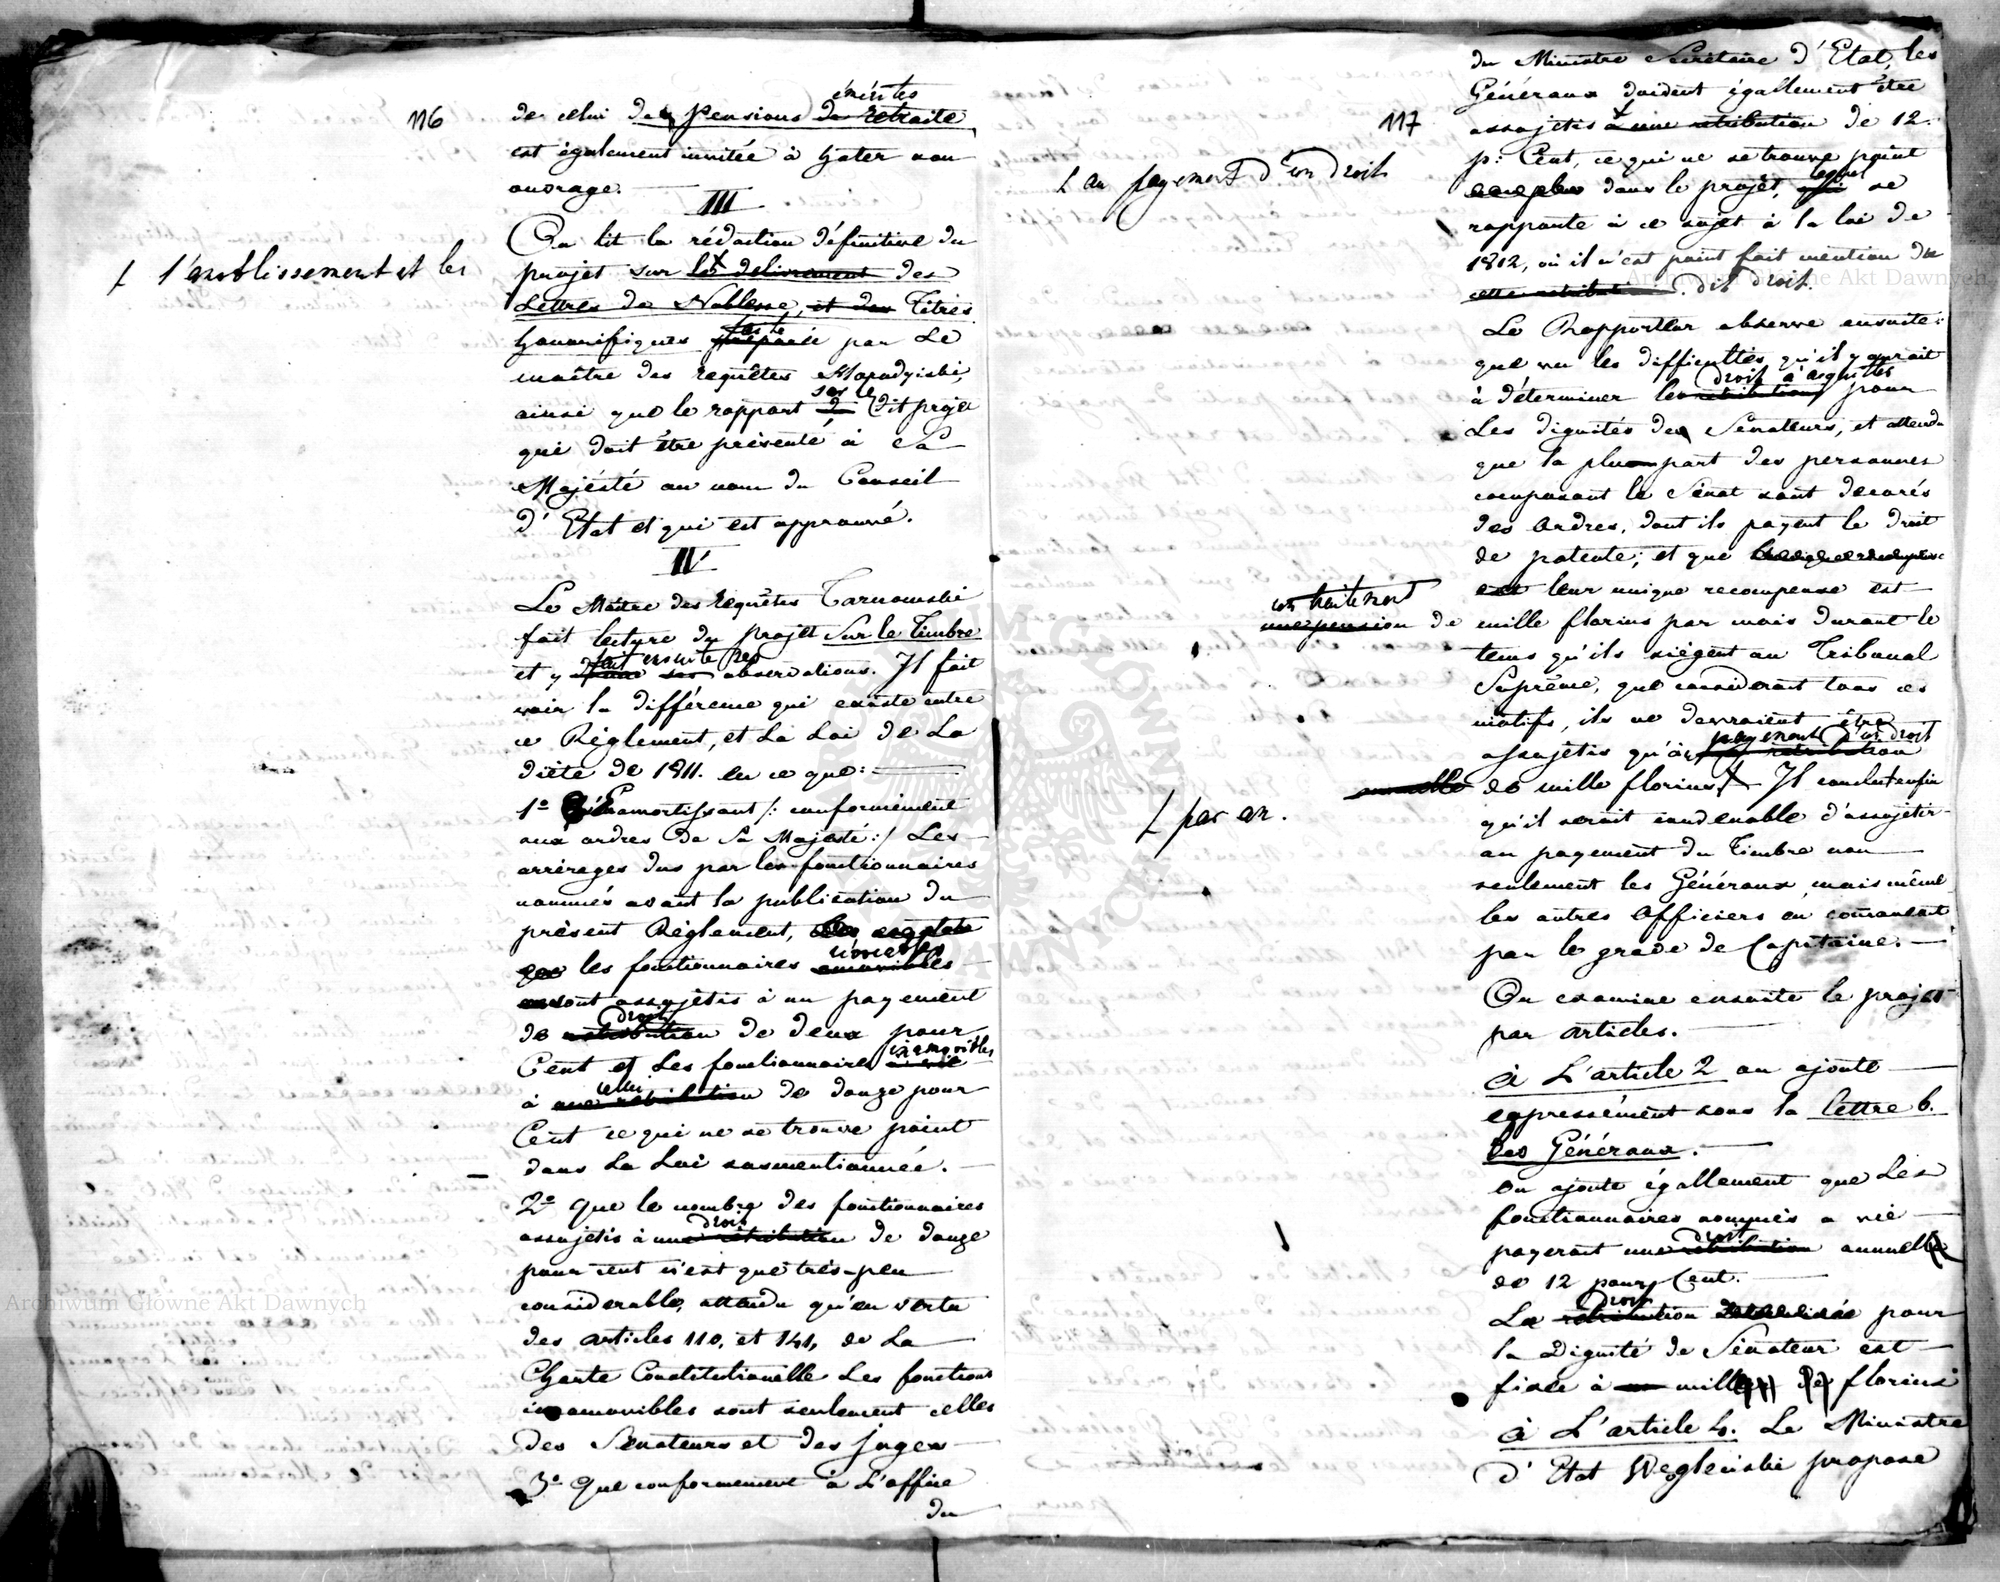 116
émérites
de celui des Pensions de retraite,
est également invitée à hater son
ouvrage.
III
On lit la rédaction définitive du
ſ l'anoblissement et les
projet sur le délivrement des
Lettres de Noblesse, et des Titres
faite
honorifiques préparée par Le
maître des requêtes
sur le
ainsi que le rapport du dit projet
qui doit être présenté à Sa
Majésté au nom du Conseil
d'Etat et qui est approuvé.
IV
Le Maître des requêtes Tarnowski
fait lecture du projet Sur le Timbre
fait ensuite des
et y donne ses observations. Il fait
voir la différence qui existe entre
ce Réglement, et La Loi de La
diète de 1811. en ce que:
1º En amortissant /: conformément
aux ordres de Sa Majesté :/ Les
arrérages dus par les fonctionnaires
nommés avant la publication du
présent Réglement,
les fonctionnaires amovibles
sont assujétis à un payement
droit
de retribution de deux pour
inamovibles
Cent et Les fonctionnaires
celui
à une retribution de douze pour
Cent ce qui ne se trouve point
dans La Loi susmentionnée.
2º Que le nombre des fonctionnaires
droit
assujétis à une retribution de douze
pour cent n'est que très-peu
considerable, attendu qu'en vertu
des articles 110, et 141, de La
Charte Constitutionelle Les fonctions
inamovibles sont seulement celles
des Sénateurs et des juges
3º Que conformement à L'office
du
117
du Ministre Secrétaire d'Etat, les
Généraux doivent également être
assujetis à une retribution de 12.
ſ au payement d'un droit
p: Cent, ce qui ne se trouve point
lequel
dans le projet, qui se
rapporte à ce sujet à la loi de
1812, où il n'est point fait mention du
cette retribution. dit droit.
Le Rapporteur observe ensuite:
que, vu les difficultés, qu'il y aurait
droits à acquitter
à déterminer les retributions pour
Les dignités des Sénateurs, et attendu
que la plus part des personnes
composant le Sénat sont decorés
des ordres, dont ils payent le droit
de patente; et que
est leur unique recompense est
un traitement
une pension de mille florins par mois durant le
tems qu'ils siègent au Tribunal
Suprême, que considerant tous ces
motifs, ils ne devraient être
payement d'un droit
assujétis qu'à une retribution
annuelle de mille florins. Il conclut enfin
ſ par an.
qu'il serait convenable d'assujétir
au payement du Timbre non
seulement les Généraux, mais même
les autres Officiers en commençant
par le grade de Capitaine.
On examine ensuite le projet
par articles.
à L'article 2 on ajoute
expressément sous la lettre b.
les Généraux.
On ajoute également que Les
fonctionnaires nommés a vie
droit
payeront une retribution annuelle
de 12 pour Cent.
droit
La retribution pour
la Dignité de Sénateur est
fixée à mille florins
à L'article 4. Le Ministre
d'Etat Węgleński propose
Archiwum Główne Akt Dawnych
Archiwum Główne Akt Dawnych